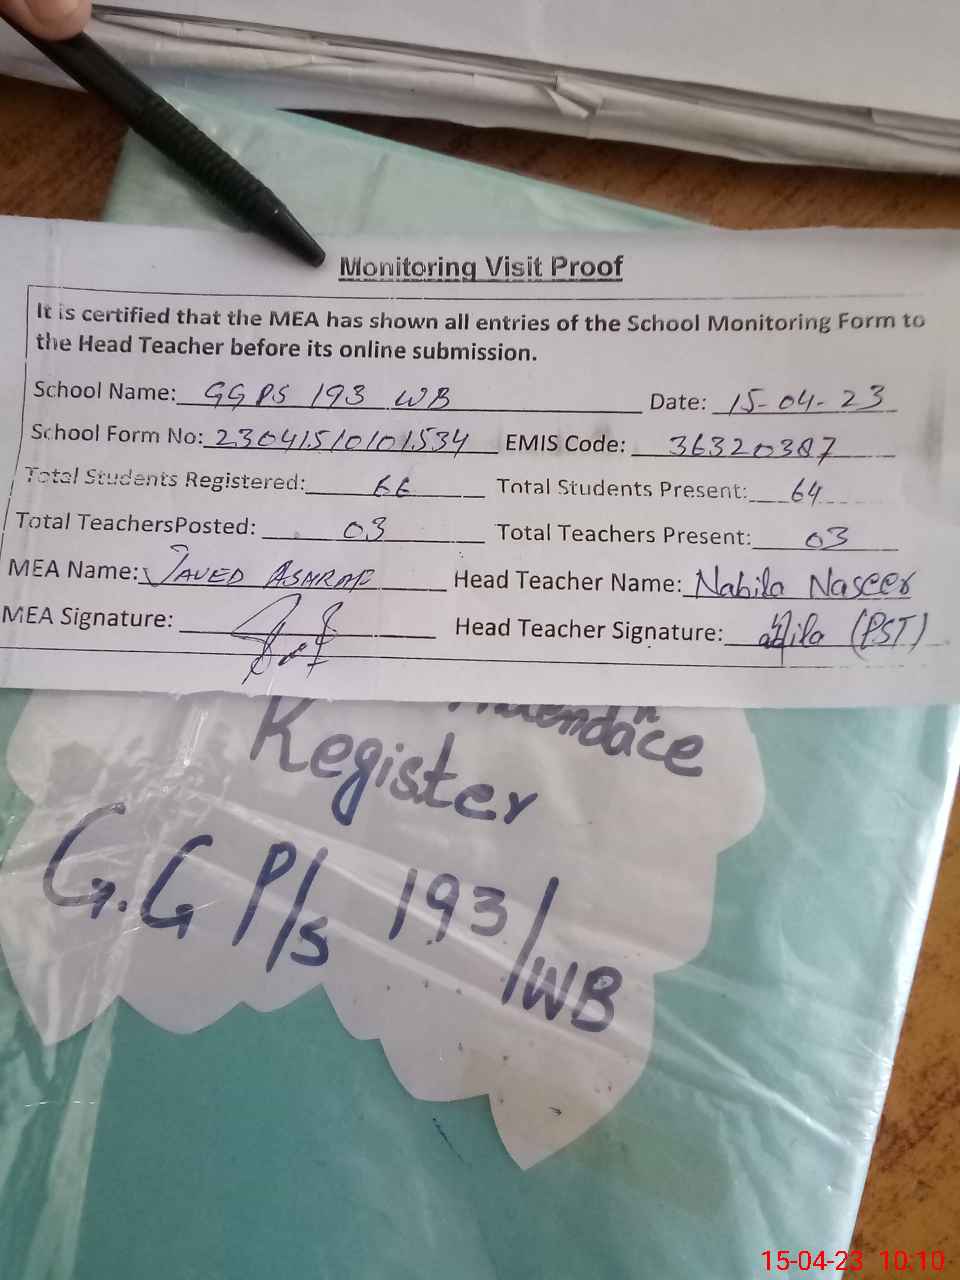 Monitoring Visit Proof
It is certified that the MEA has shown all entries of the School Monitoring Form to
the Head Teacher before its online submission.
School Name: GGPS 193 WB Date: 15-04-23
School Form No: 23041510101534 EMIS Code: 36320387
Total Students Registered: 66 Total Students Present: 64
Total TeachersPosted: 03 Total Teachers Present: 03
MEA Name: JAVED ASHRAF Head Teacher Name: Nabila Naseer
MEA Signature: Head Teacher Signature: (PST)
Attendance
Register
G.G P/s 193/WB
15-04-23 10:10